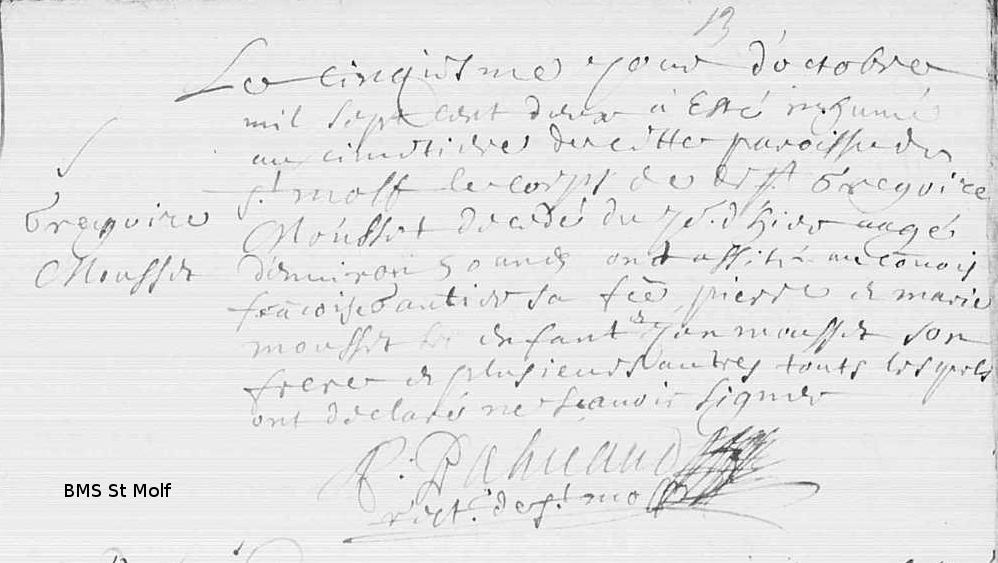 13
Le cinquisme jour d'octobre
mil sept cent deux a Esté inhumé
au cimetiere de cette paroisse de
St molf le corps de Gregoire
Mousset decedé du jour d'hier aagé
d'environ 50 ans ont assisté au convoy
francoise Gautier sa fee pierre et marie
mousset enfants Jan mousset son
frere et plusieurs autres touts lesquels
ont declaré ne scavoir signer
rect. de St molf
Gregoire
Mousset
BMS St Molf